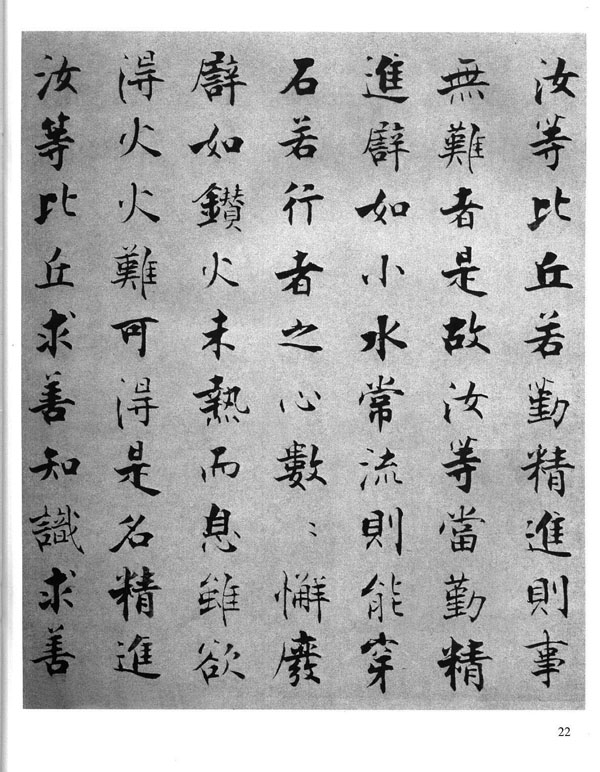 汝等比丘若勤精進則事
無難者是故汝等當勤精
進譬如小水常流則能穿
石若行者之心數〻懈廢
譬如鑽火未熱而息雖欲
得火火難可得是名精進
汝等比丘求善知識求善
22